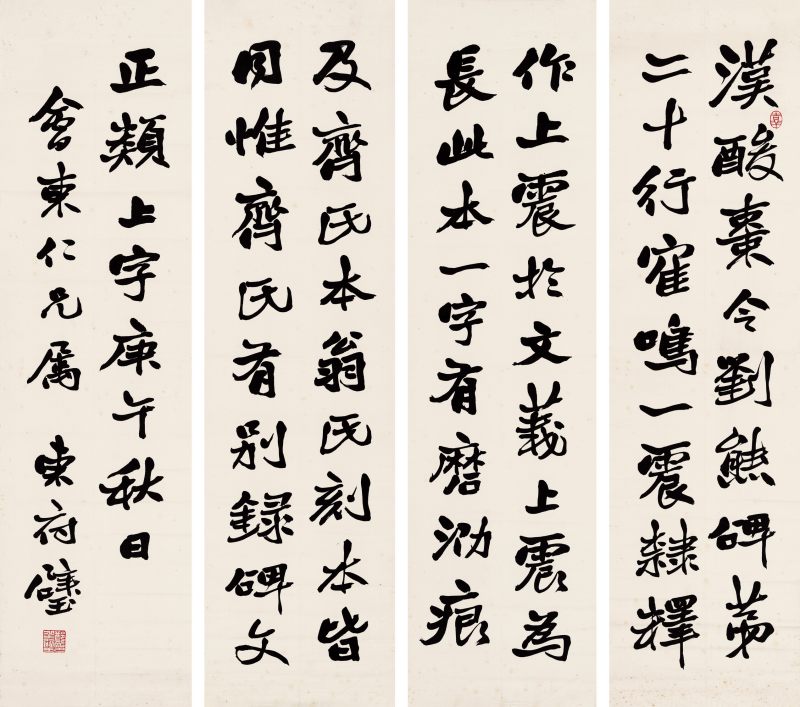 漢酸棗令劉熊碑第
二十行寉鳴一震隸釋
作上震於文義上震為
長此本一字有磨泐痕
及齊氏本翁氏刻本皆
同惟齊氏有别録碑文
正類上字庚午秋日
會東仁兄属 東府